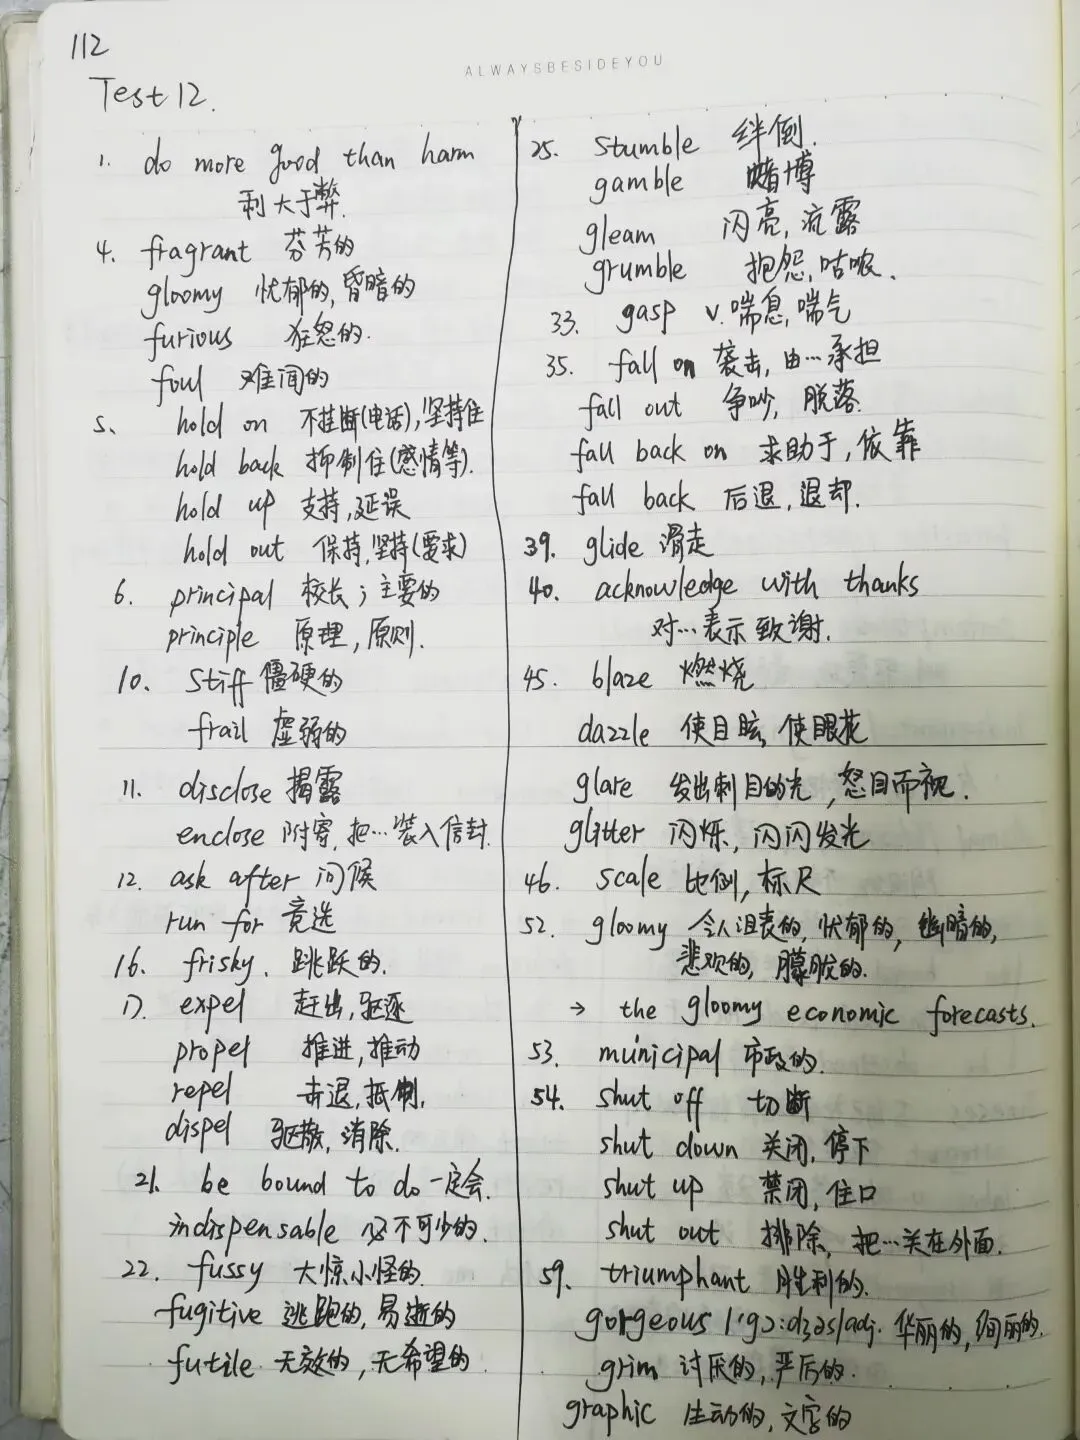 112
ALWAYSBESIDEYOU
Test 12.
1. do more good than harm
利大于弊.
4. fragrant 芬芳的
gloomy 忧郁的,昏暗的
furious 狂怒的.
foul 难闻的
5、 hold on 不挂断(电话),坚持住
hold back 抑制住(感情等).
hold up 支持,延误
hold out 保持,坚持(要求)
6. principal 校长;主要的
principle 原理,原则.
10. stiff 僵硬的
frail 虚弱的
11. disclose 揭露
enclose 附寄,把…装入信封.
12. ask after 问候
run for 竞选
16. frisky. 跳跃的.
17. expel 赶出,驱逐
propel 推进,推动
repel 击退,抵制,
dispel 驱散,消除.
21. be bound to do 一定会.
indispensable 必不可少的.
22. fussy 大惊小怪的.
fugitive 逃跑的,易逝的
futile 无效的,无希望的
25. stumble 绊倒.
gamble 赌博
gleam 闪亮,流露
grumble 抱怨,咕哝.
33. gasp v.喘息,喘气
35. fall on 袭击,由…承担
fall out 争吵,脱落.
fall back on 求助于,依靠
fall back 后退,退却.
39. glide 滑走
40. acknowledge with thanks
对…表示致谢.
45. blaze 燃烧
dazzle 使目眩,使眼花
glare 发出刺目的光,怒目而视.
glitter 闪烁,闪闪发光
46. scale 比例,标尺
52. gloomy 令人沮丧的,忧郁的,幽暗的,
悲观的,朦胧的.
→ the gloomy economic forecasts.
53. municipal 市政的.
54. shut off 切断
shut down 关闭,停下
shut up 禁闭,住口
shut out 排除,把…关在外面.
59. triumphant 胜利的.
gorgeous /'gɔ:dʒəs/adj. 华丽的,绚丽的.
grim 讨厌的,严厉的.
graphic 生动的,文字的